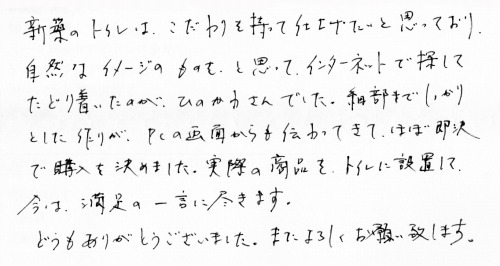 新築のトイレは、こだわりを持って仕上げたいと思っており、
自然なイメージのものを、と思って、インターネットで探して
たどり着いたのが、ひのかわさんでした。細部までしっかり
とした作りが、PCの画面からも伝わってきて、ほぼ即決
で購入を決めました。実際の商品を、トイレに設置して、
今は、満足の一言に尽きます。
どうもありがとうございました。またよろしくお願い致します。